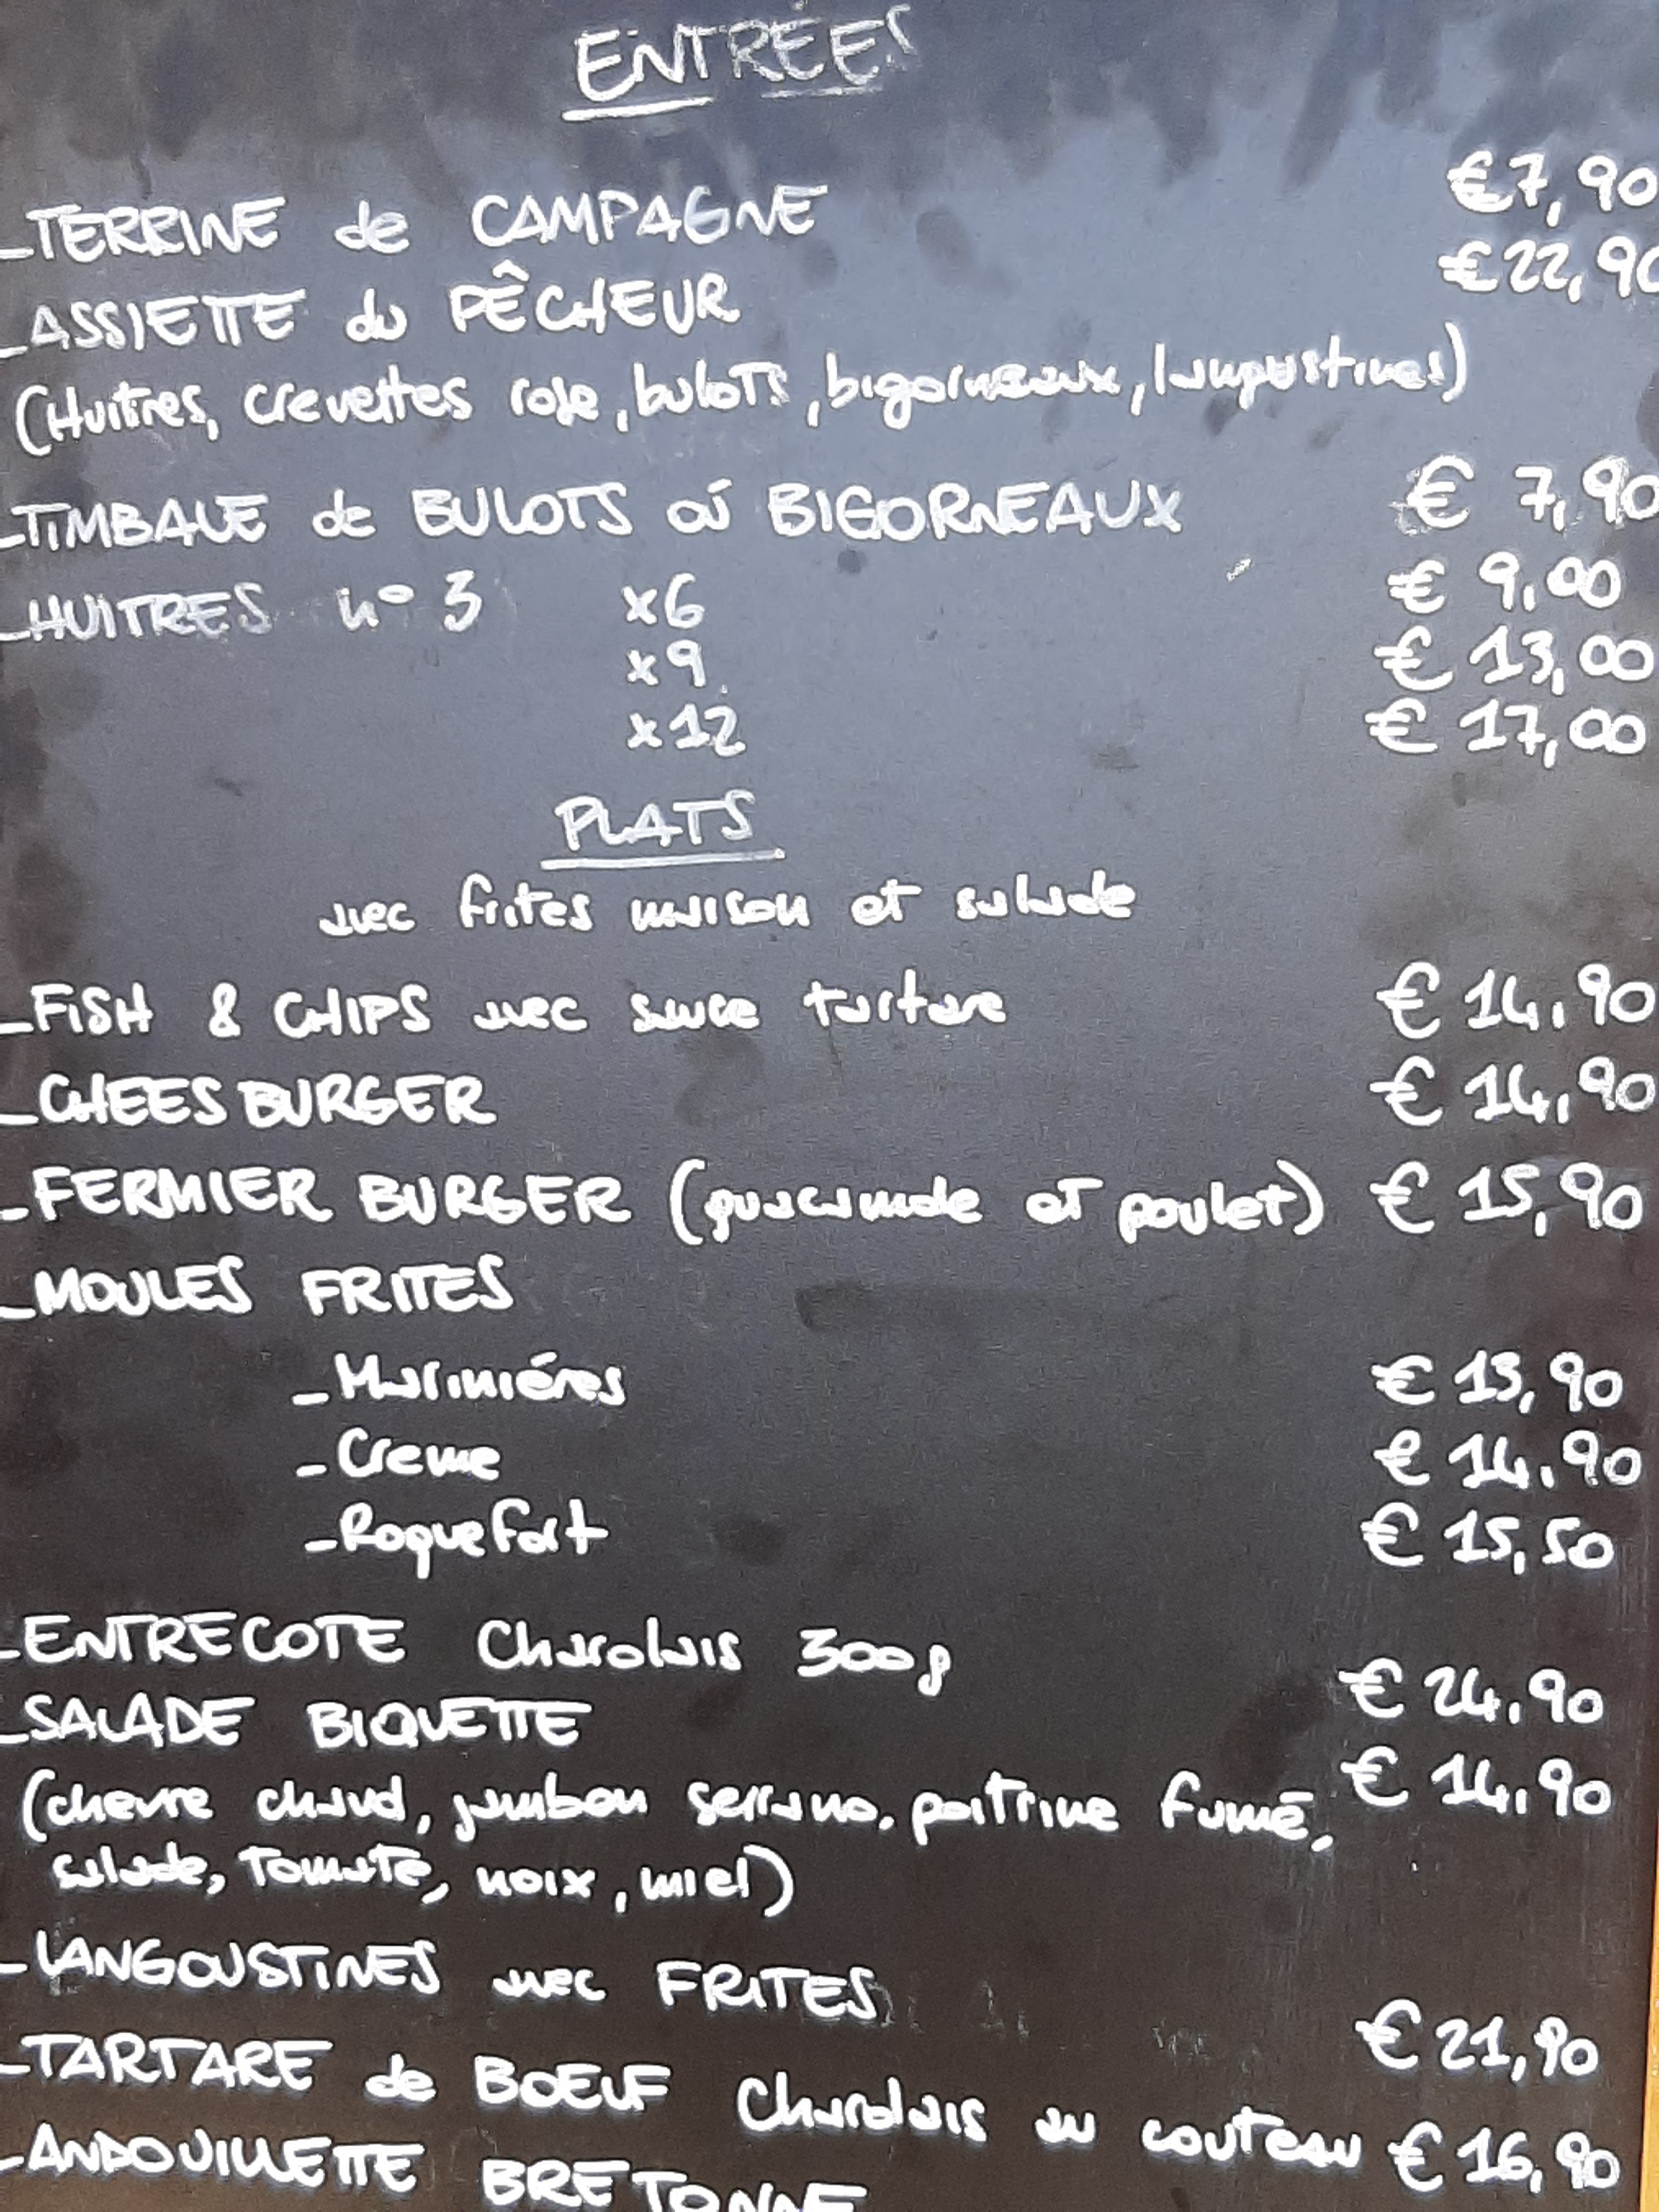 ENTRÉES
_TERRINE de CAMPAGNE €7,90
_ASSIETTE du PÊCHEUR €22,90
(Huitres, crevettes rose, bulots, bigorneaux, langoustines)
_TIMBALE de BULOTS où BIGORNEAUX € 7,90
_HUITRES n° 3 x6 € 9,00
x9 € 13,00
x12 € 17,00
PLATS
avec frites maison et salade
_FISH & CHIPS avec sauce tartare € 14,90
_CHEES BURGER € 14,90
_FERMIER BURGER (guacamole et poulet) € 15,90
_MOULES FRITES
_Mariniéres € 13,90
_Creme € 14,90
_Roquefort € 15,50
_ENTRECOTE Charolais 300g € 24,90
_SALADE BIQUETTE € 14,90
(chevre chaud, jambon serrano, poitrine fumé,
salade, tomate, noix, miel)
_LANGOUSTINES avec FRITES € 21,90
_TARTARE de BOEUF Charolais au couteau € 16,90
_ANDOUILLETTE BRETONNE